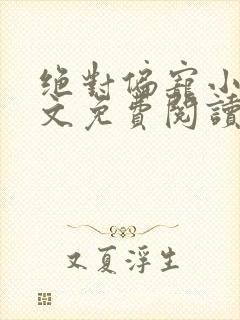 絕對偏寵小
文免費閱讀
又夏浮生